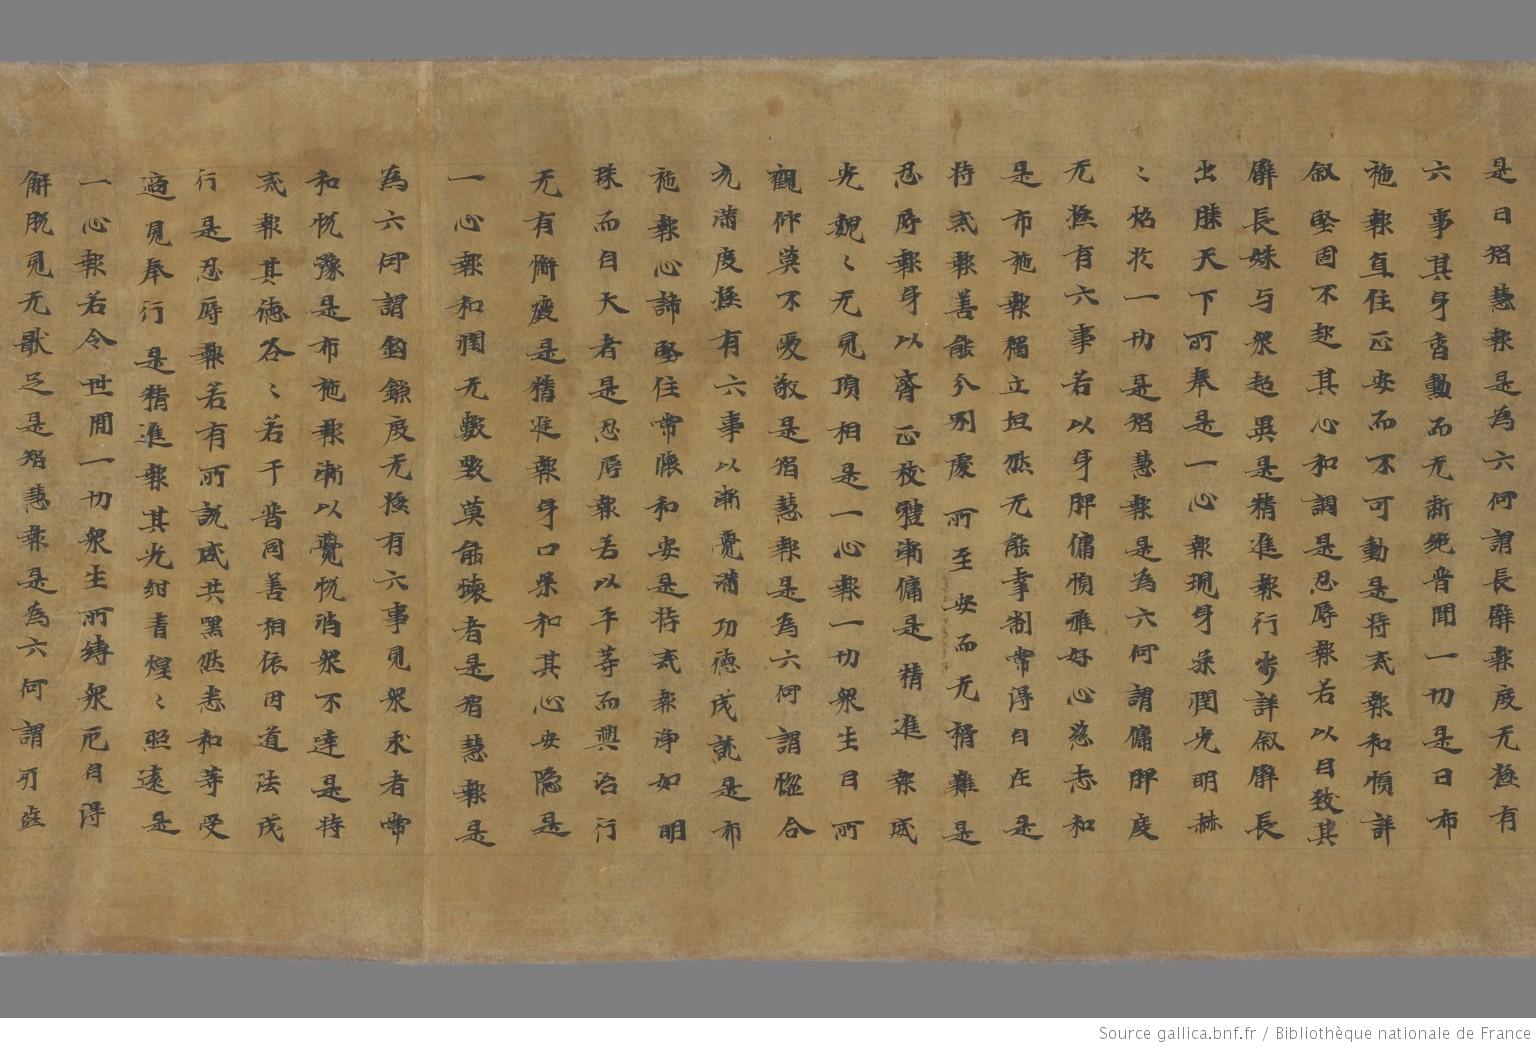 是曰智慧報是為六何謂長臂報度无極有
六事其身音動而无断絶普聞一切是曰布
施報直住正安而不可動是持戒報和順詳
叙堅固不起其心和調是忍辱報若以自致其
臂長姝与衆超異是精進報行步詳叙臂長
出膝天下所奉是一心報現身柔潤光明赫
〻焰於一切是智慧報是為六何謂傭髀度
无極有六事若以身髀傭順雅好心慈悉和
是布施報獨立坦然无能牽制常得自在是
持戒報善能分別處所至安而无獨難是
忍辱報身以齊正被雅漸傭是精進報威
光巍〻无見頂相是一心報一切衆生目所
觀仰莫不愛敬是智慧報是為六何謂合
充滿度極有六事以漸寬滿功德茂就是布
施報心諦堅住常懷和安是持戒報淨如明
珠而自大者是忍辱報若以平等而興治行
无有懈廢是精進報身口柔和其心安隐是
一心報和潤无數數莫能壞者是智慧報是
為六何謂鉤鎖度无極有六事見衆求者常
和悦豫是布施報漸以寬悦消衆不逹是持
戒報其德各〻若干普同善相依因道法茂
行是忍辱報若有所說咸共黑然悉和等受
適見奉行是精進報其光紺青煌〻照遠是
一心報若令世間一切衆生所縛衆厄自得
解脱見无猒足是智慧報是為六何謂